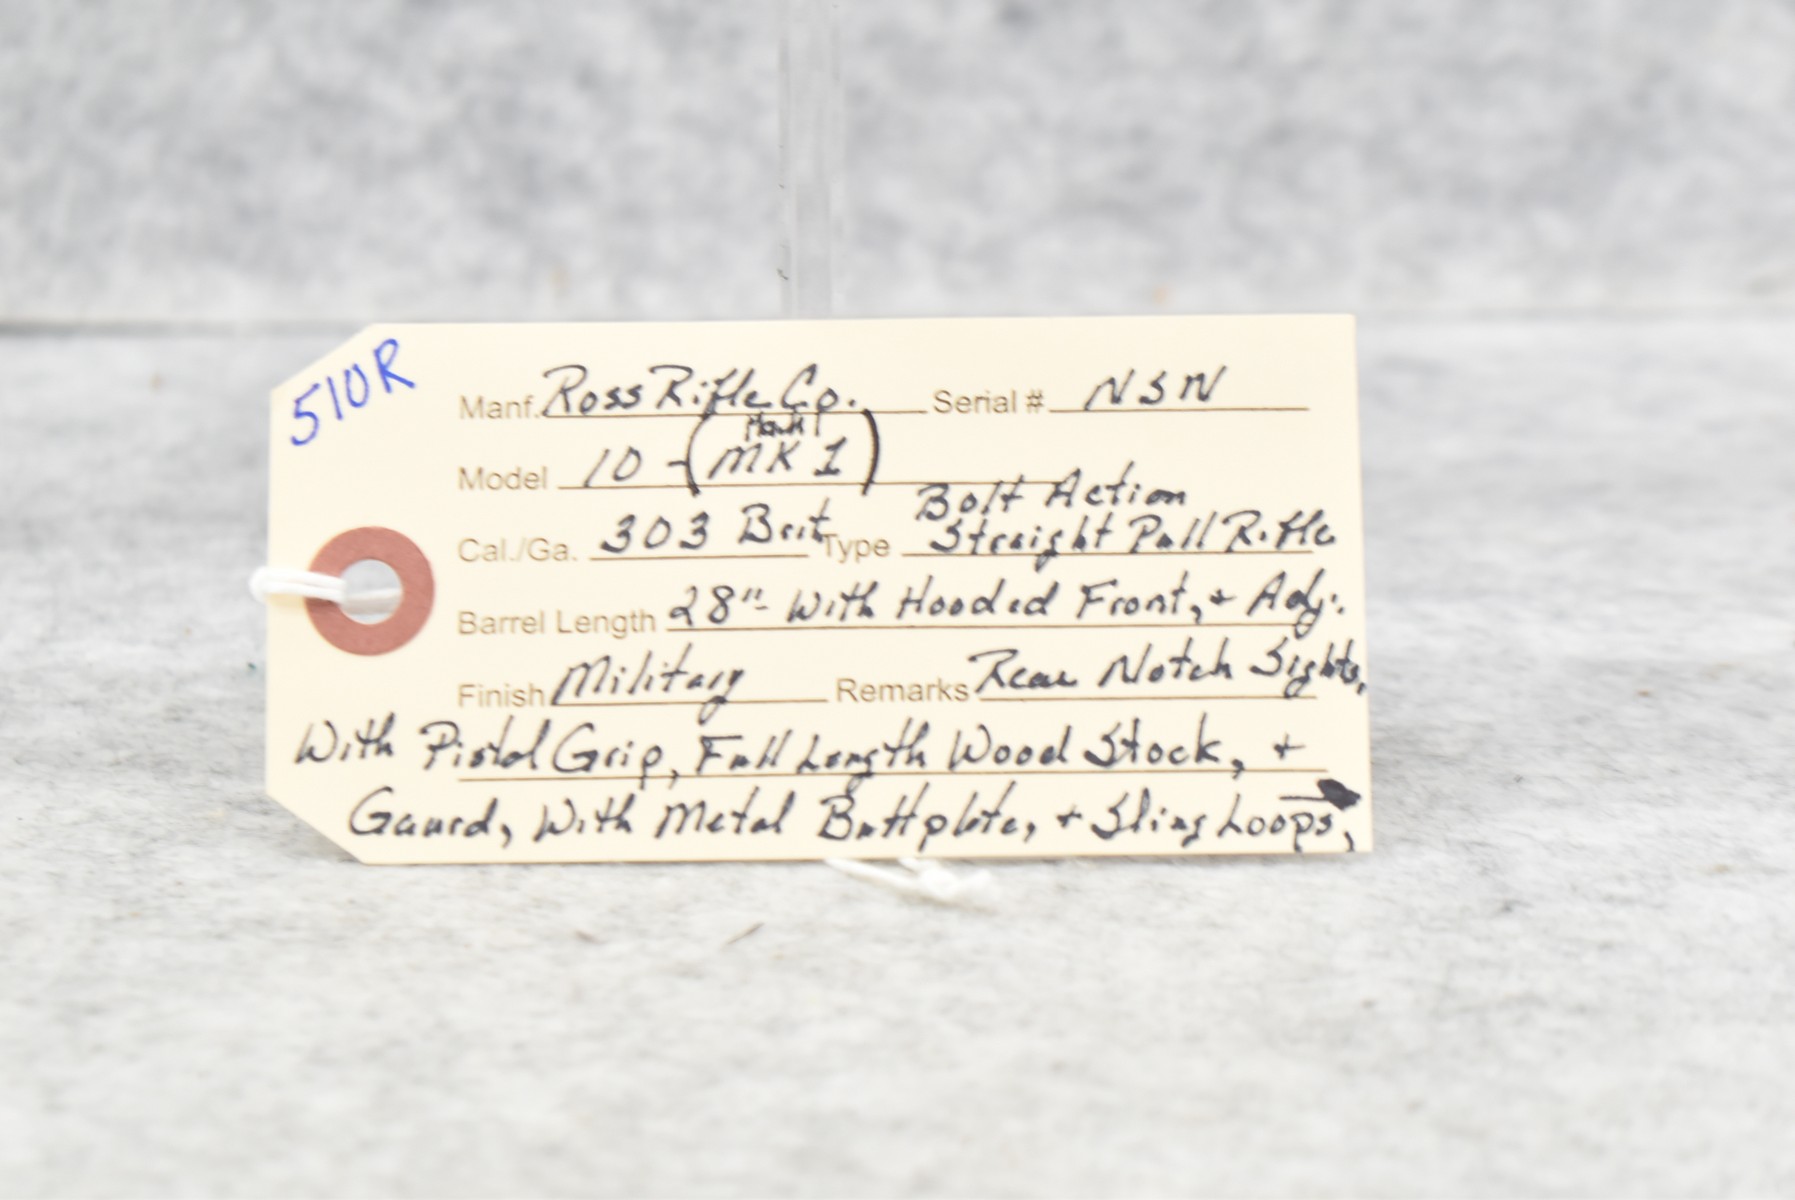 510R
Manf. Ross Rifle Co. Serial # NSN
Mark 1
Model 10 - (MK 1)
Bolt Action
Cal./Ga. 303 Brit Type Straight Pull Rifle
Barrel Length 28" - With Hooded Front, + Adj.
Finish Military Remarks Rear Notch Sights,
With Pistol Grip, Full Length Wood Stock, +
Gaurd, With Metal Buttplate, + Sling Loops,